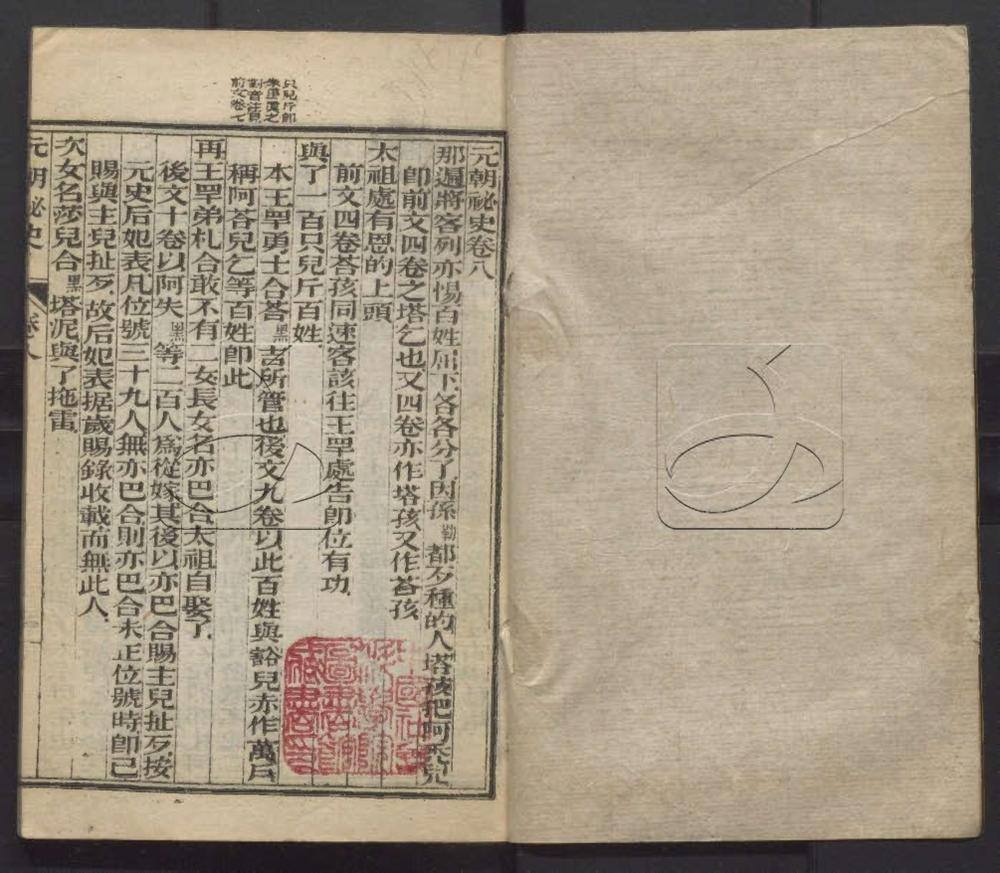 只兒斤卽
朱里眞之
對音注見
前文卷七
元朝祕史卷八
那遍將客列亦惕百姓屈下各各分了因孫勒都歹種的人塔孩把阿禿兒
卽前文四卷之塔乞也又四卷亦作塔孩又作荅孩
太祖處有恩的上頭
前文四卷荅孩同速客該往王罕處告卽位有功
與了一百只兒斤百姓
本王罕勇士合荅黑吉所管也後文九卷以此百姓與豁兒赤作萬戶
稱阿荅兒乞等百姓卽此
再王罕弟札合敢不有二女長女名亦巴合太祖自娶了
後文十卷以阿失黑等二百人爲從嫁其後以亦巴合賜主兒扯歹按
元史后妃表凡位號三十九人無亦巴合則亦巴合未正位號時卽已
賜與主兒扯歹故后妃表据歲賜錄收載而無此人
次女名莎兒合黑塔泥與了拖雷
元朝祕史 卷八